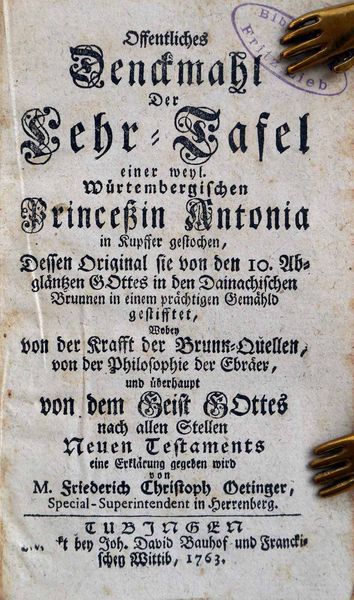 Offentliches
Denckmahl
Der
Lehr-Tafel
einer weyl.
Würtembergischen
Princeßin Antonia
in Kupffer gestochen,
Dessen Original sie von den 10. Ab-
gläntzen GOttes in den Dainachischen
Brunnen in einem prächtigen Gemähld
gestifftet,
Wobey
von der Krafft der Brunn-Quellen,
von der Philosophie der Ebräer,
und überhaupt
von dem Geist GOttes
nach allen Stellen
Neuen Testaments
eine Erklärung gegeben wird
von
M. Friederich Christoph Oetinger,
Special-Superintendent in Herrenberg.
TUBINGEN
bey Joh. David Bauhof und Francki-
schen Wittib, 1763.
Fritz Lieb